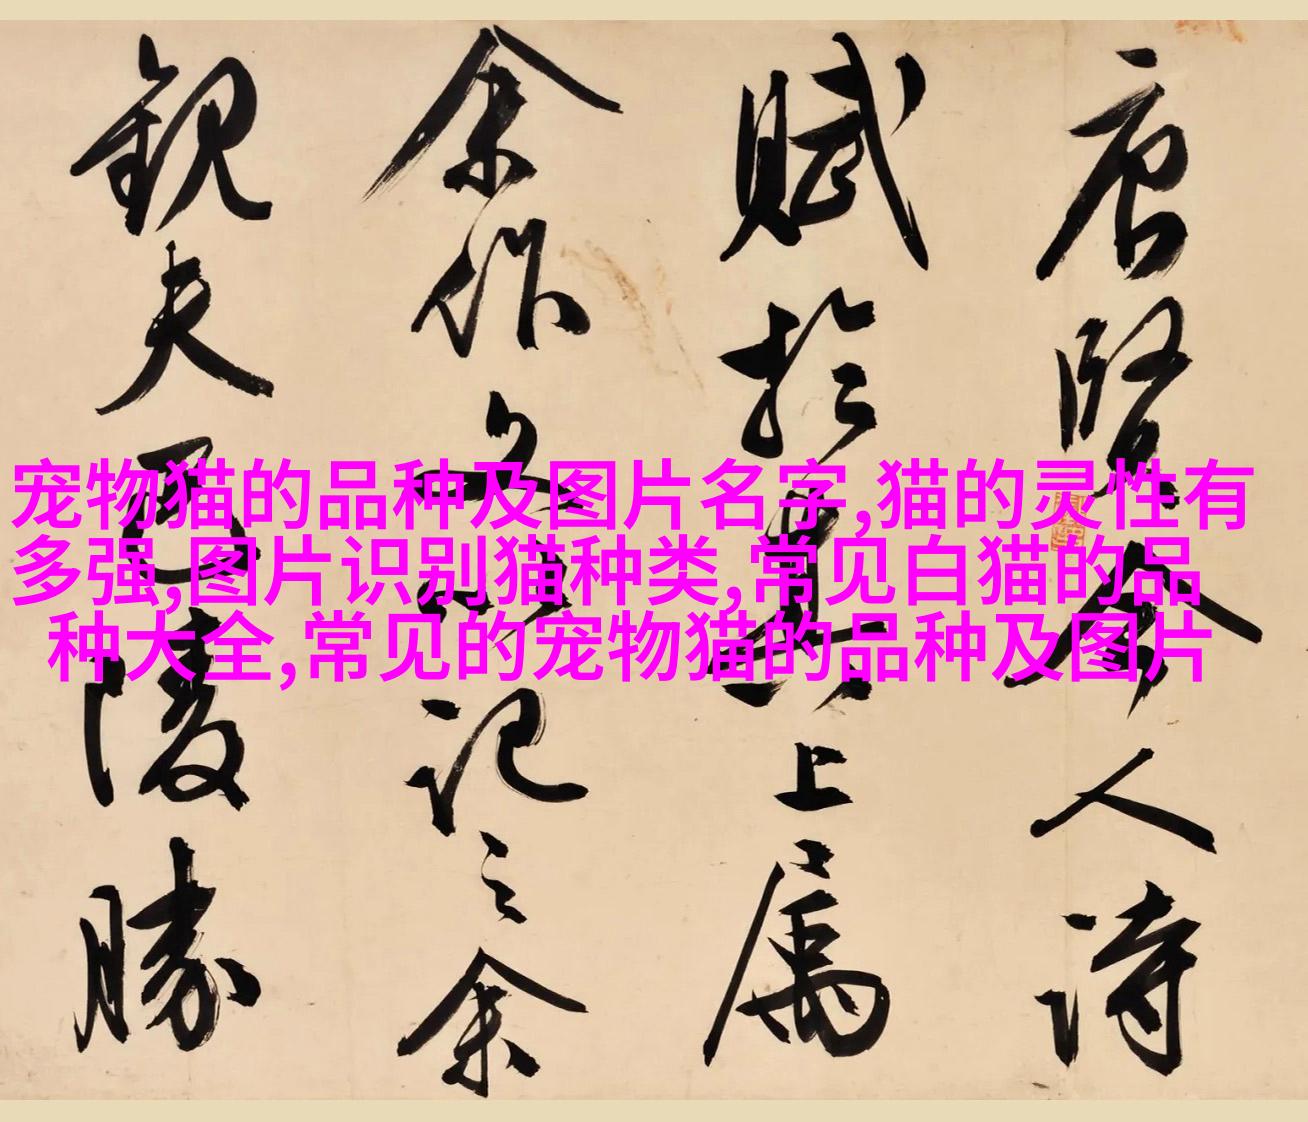 唐賢今人詩
賦於其上屬
余作文以記之余
觀夫巴陵勝
宠物猫的品种及图片名字,猫的灵性有
多强,图片识别猫种类,常见白猫的品
种大全,常见的宠物猫的品种及图片